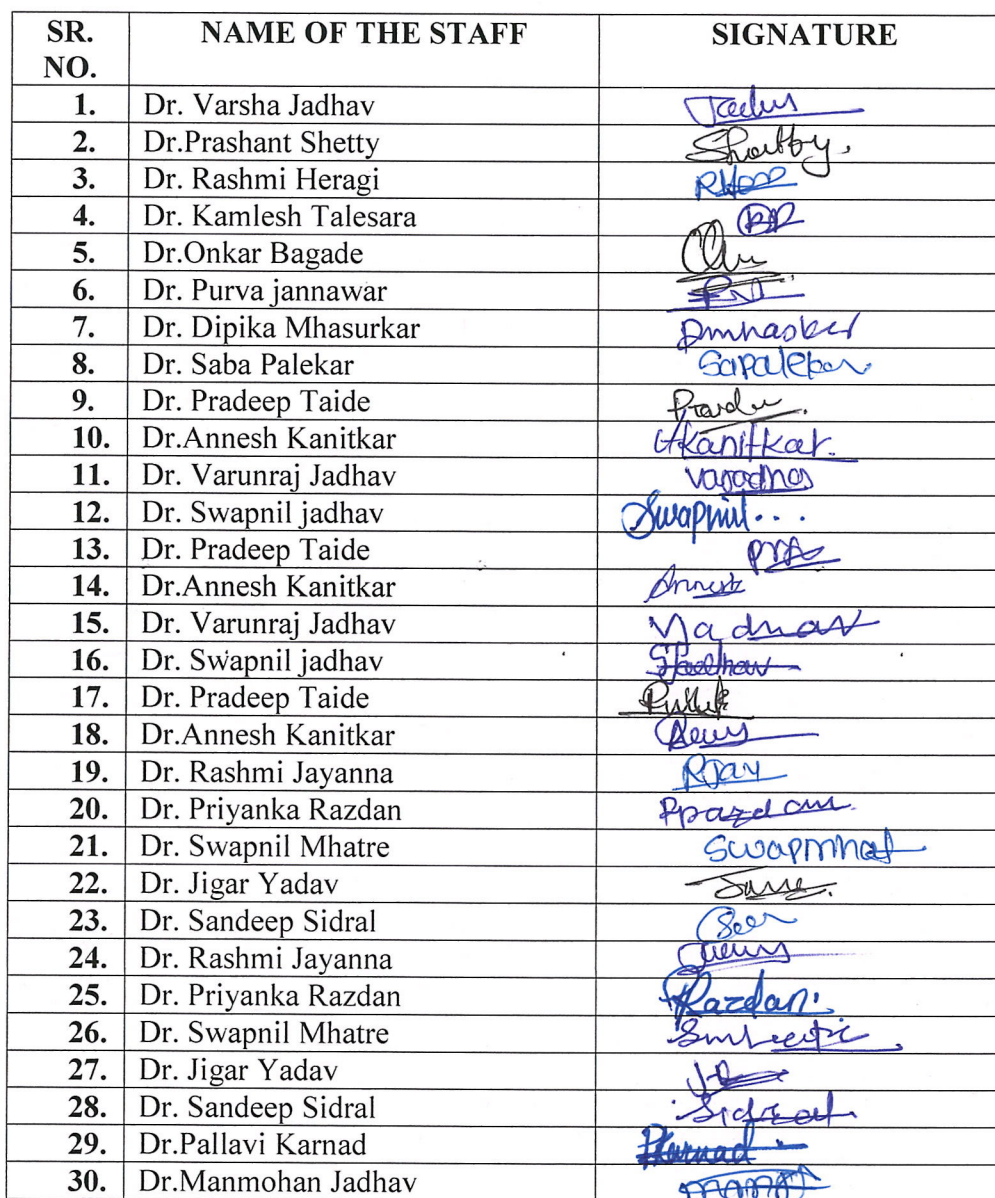 SR. NO. NAME OF THE STAFF SIGNATURE
1. Dr. Varsha Jadhav
2. Dr.Prashant Shetty
3. Dr. Rashmi Heragi
4. Dr. Kamlesh Talesara
5. Dr.Onkar Bagade
6. Dr. Purva jannawar
7. Dr. Dipika Mhasurkar
8. Dr. Saba Palekar
9. Dr. Pradeep Taide
10. Dr.Annesh Kanitkar Kanitkar.
11. Dr. Varunraj Jadhav
12. Dr. Swapnil jadhav Swapnil...
13. Dr. Pradeep Taide
14. Dr.Annesh Kanitkar
15. Dr. Varunraj Jadhav
16. Dr. Swapnil jadhav
17. Dr. Pradeep Taide
18. Dr.Annesh Kanitkar
19. Dr. Rashmi Jayanna RJay
20. Dr. Priyanka Razdan
21. Dr. Swapnil Mhatre
22. Dr. Jigar Yadav
23. Dr. Sandeep Sidral
24. Dr. Rashmi Jayanna
25. Dr. Priyanka Razdan
26. Dr. Swapnil Mhatre
27. Dr. Jigar Yadav
28. Dr. Sandeep Sidral
29. Dr.Pallavi Karnad PKarnad
30. Dr.Manmohan Jadhav